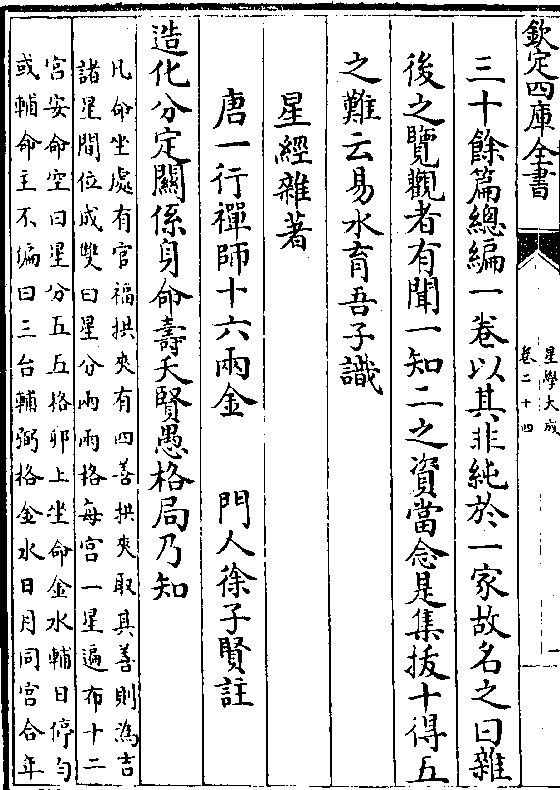 欽定四庫全書
星學大成
卷二十四
一
三十餘篇總編一卷以其非純於一家故名之曰雜
後之覽觀者有聞一知二之資當念是集拔十得五
之難云易水育吾子識
星經雜著
唐一行禪師十六兩金 門人徐子賢註
造化分定關係身命壽夭賢愚格局乃知
凡命坐處有官福拱夾有四善拱夾取其善則爲吉
諸星間位成雙曰星分兩兩格每宫一星遍布十二
宮安命空曰星分五五格卯上坐命金水輔日停勻
或輔命主不偏曰三台輔弼格金水日月同宫合年